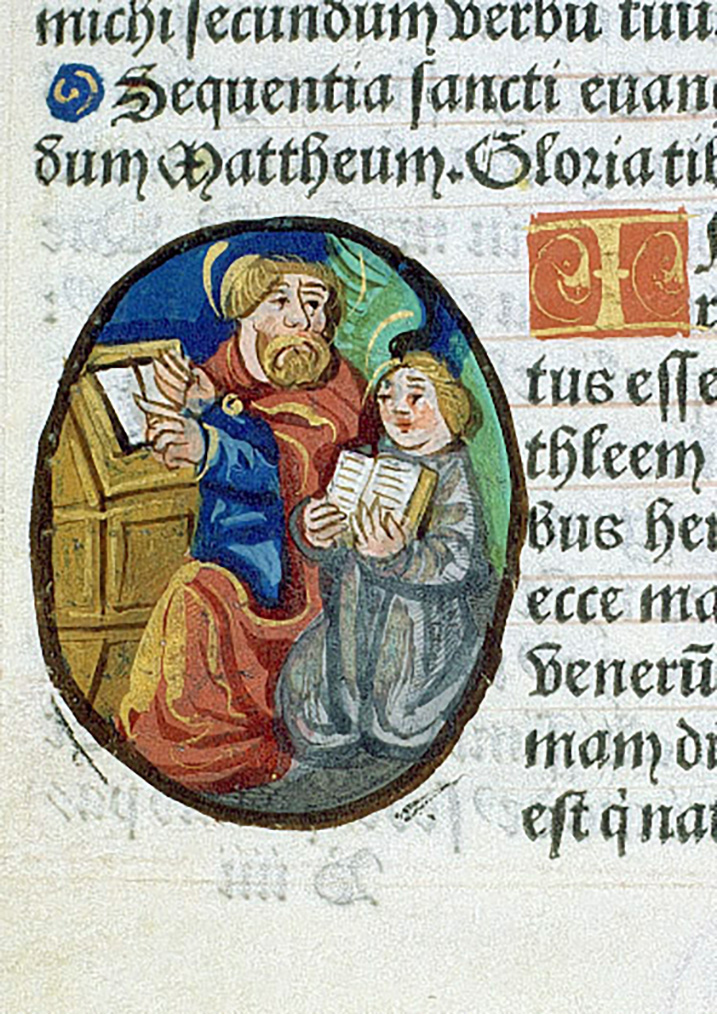 michi secundum verbū tuu
Sequentia sancti euan
dum Mattheum. Gloria tib
T
tus esse
thleem
bus her
ecce ma
venerūt
mam di
est q̇ nat